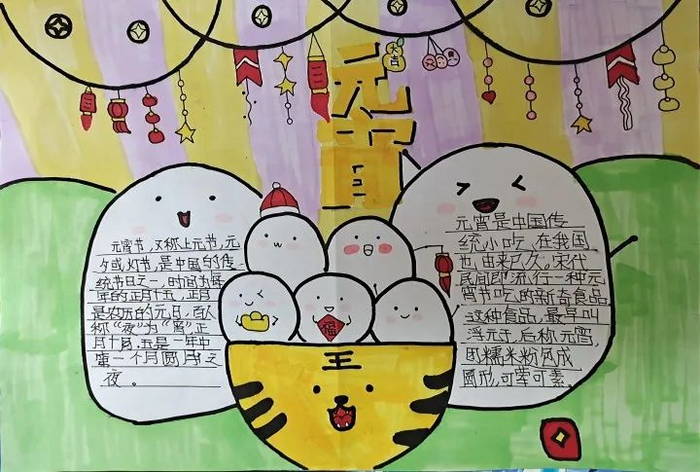 元宵
元宵节，又称上元节，元
夕或灯节，是中国的传
统节日之一，时间为每
年的正月十五，正月
是农历的元月，古人
称“夜”为“宵”，正
月十五是一年中
第一个月圆之
夜。
元宵是中国传
统小吃，在我国
也由来已久。宋代
民间即流行一种元
宵节吃的新奇食品
这种食品，最早叫
浮元子，后称元宵，
用糯米粉
圆形，可荤可素。
福
王